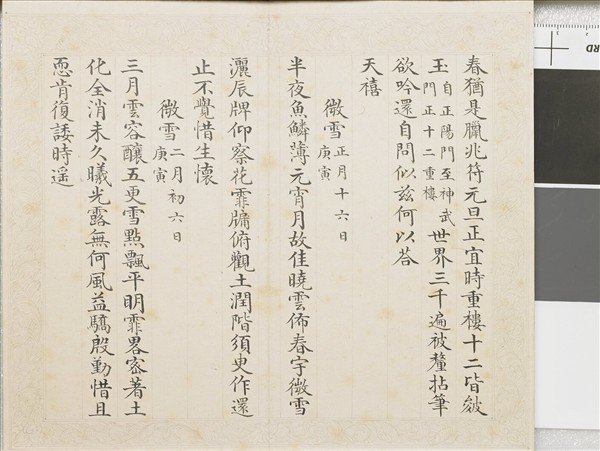 春猶是臘兆符元旦正宜時重樓十二皆皴
玉自正陽門至神武門正十二重樓世界三千遍被釐拈筆
欲吟還自問似茲何以荅
天禧
微雪正月十六日庚寅
半夜魚鱗薄元宵月故佳曉雲佈春宇微雪
灑辰牌仰察花霏牖俯觀土潤階須臾作還
止不覺惜生懷
微雪二月初六日庚寅
三月雲容釀五更雪點飄平明霏畧密著土
化全消未久曦光露無何風益驕殷勤惜且
恧肯復諉時遥